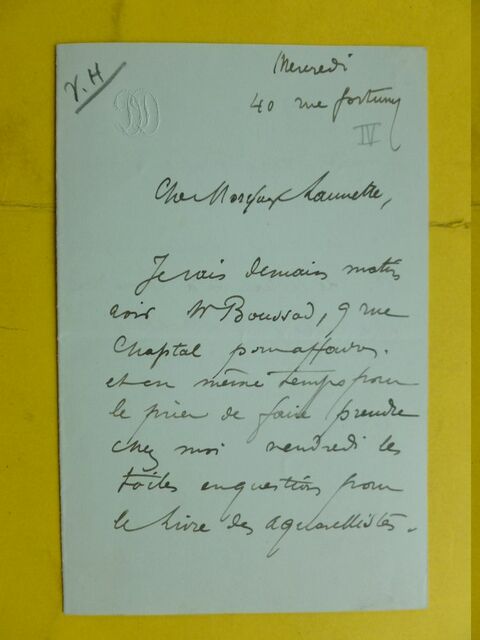 V. H
Mercredi
40 rue fortuny
IV
Cher Monsieur Launette,
Je vais demain matin
voir Mr Boussod, 9 rue
Chaptal pour affaires.
et en même temps pour
le prier de faire prendre
chez moi vendredi les
toiles en question pour
le Livre des aquarellistes.